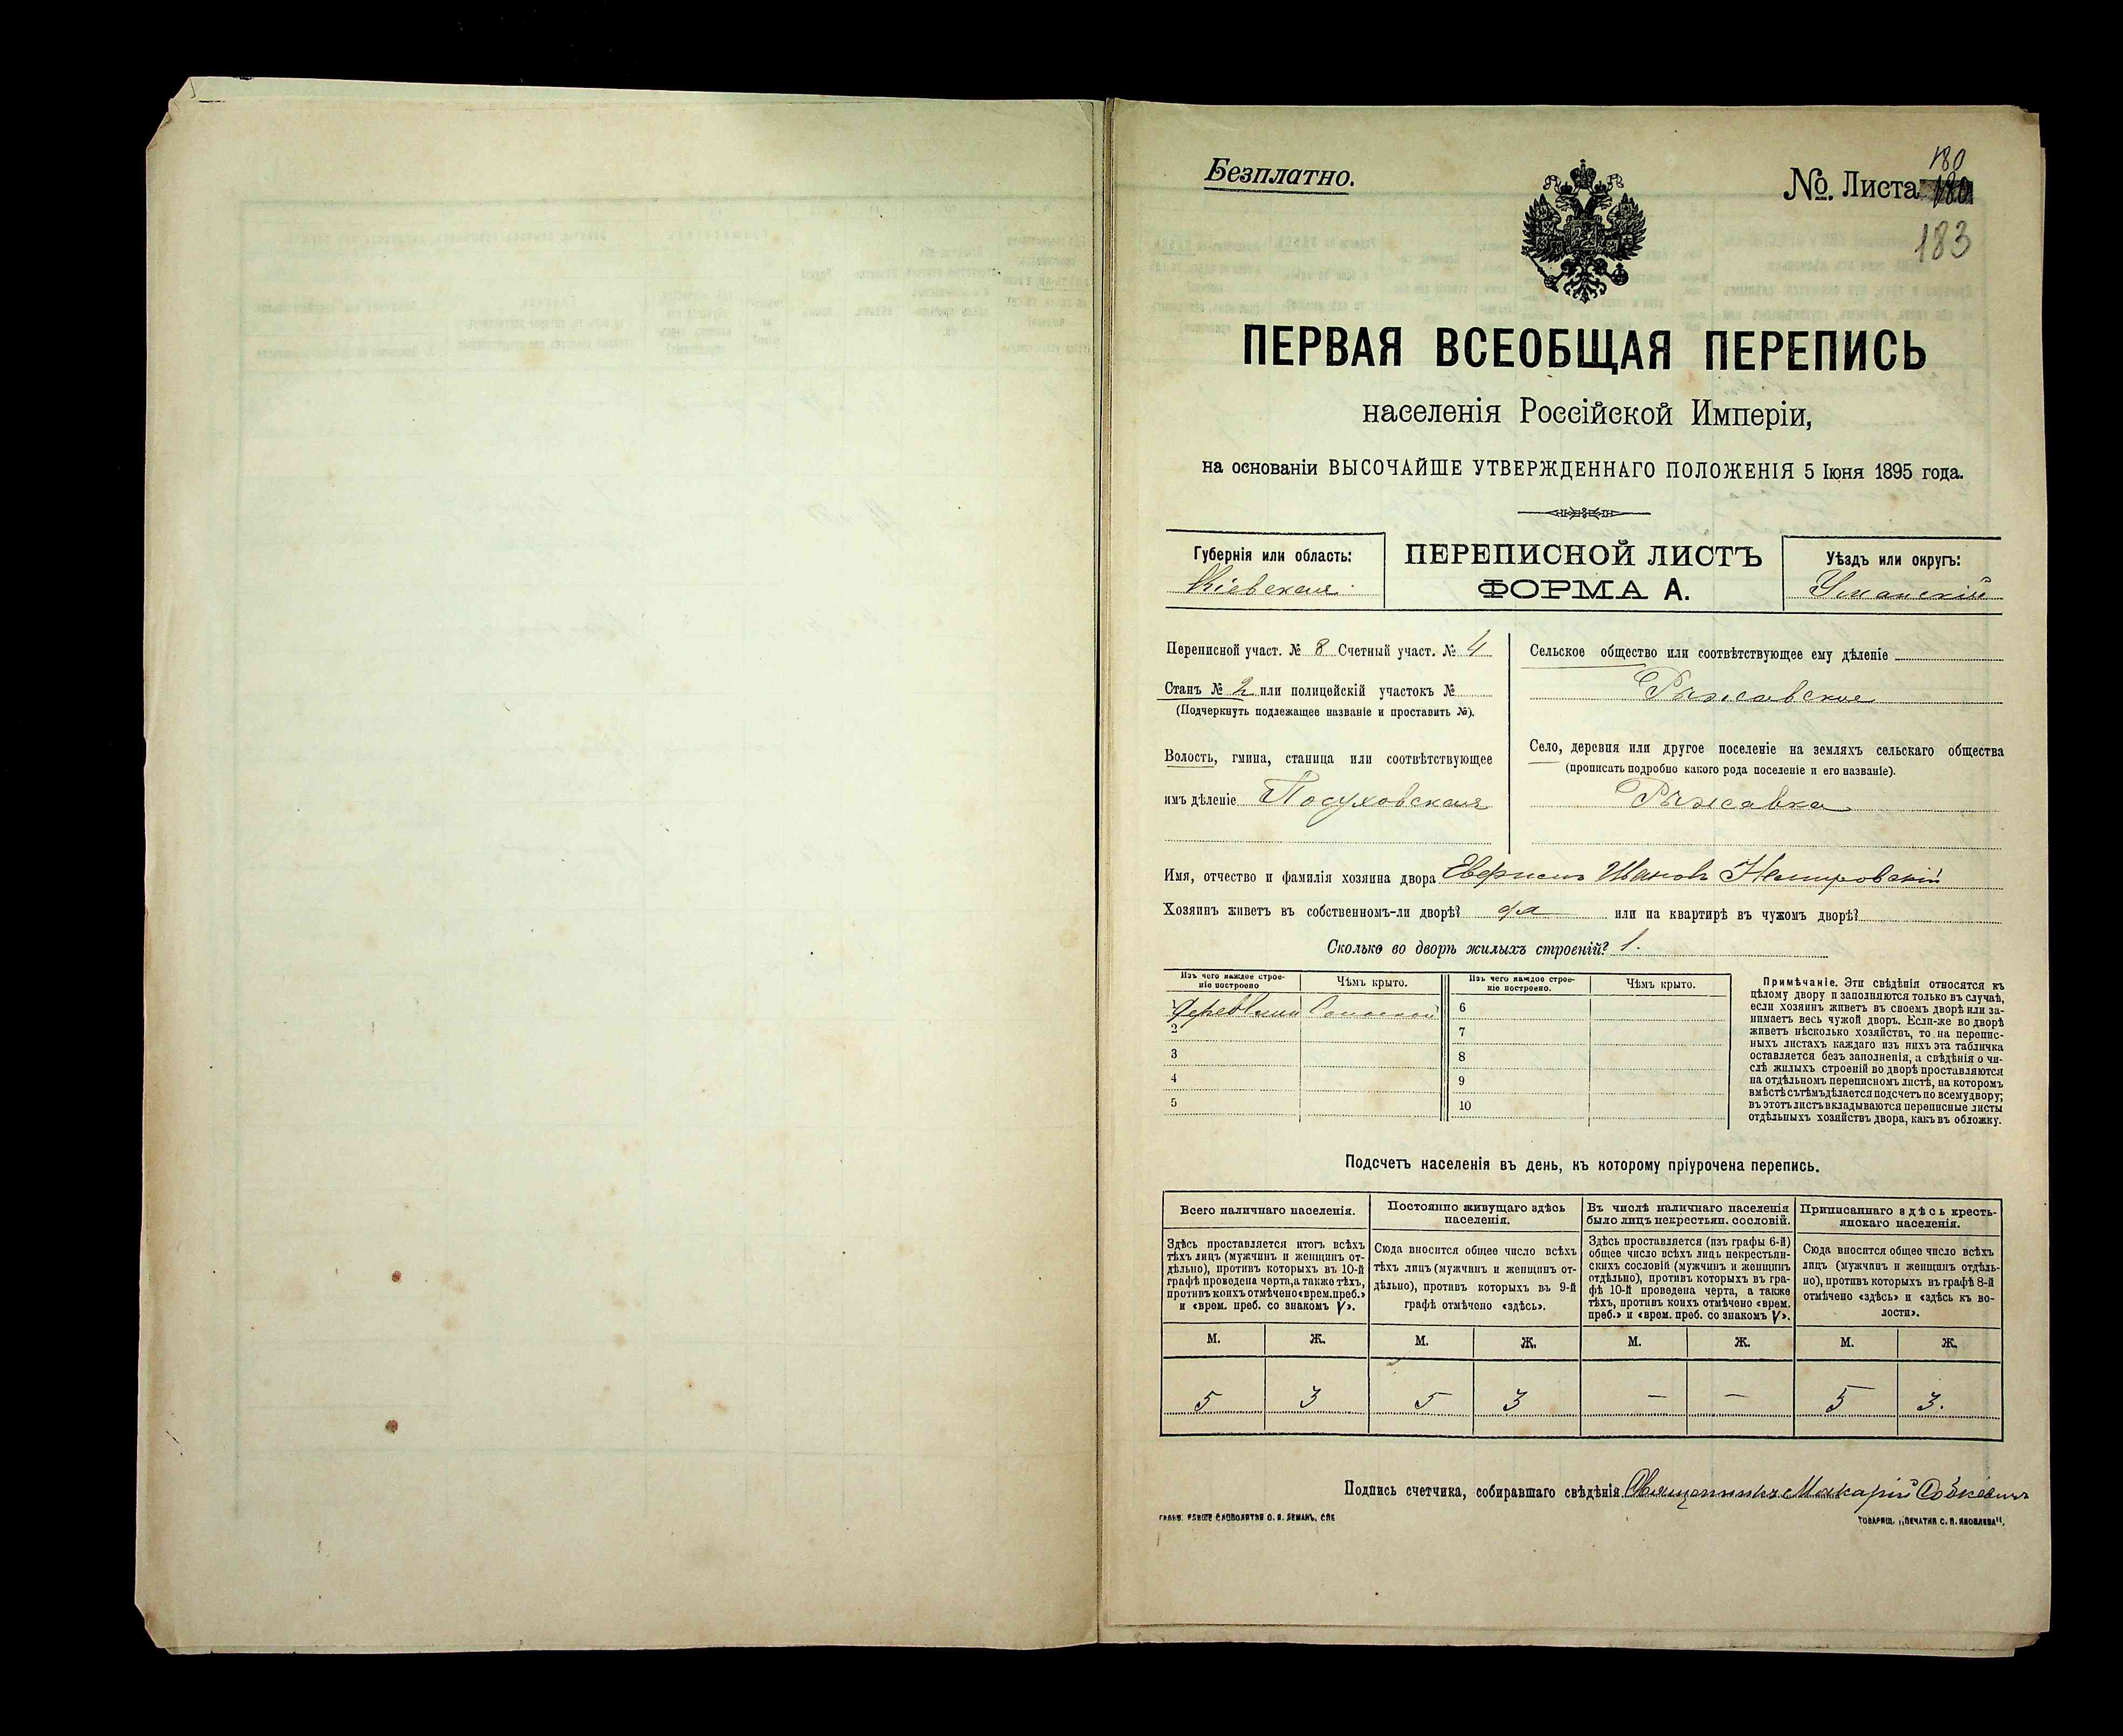 Безплатно.
№ Листа 180
180
183
ПЕРВАЯ ВСЕОБЩАЯ ПЕРЕПИСЬ
населенія Россійской Имперіи,
на основаніи ВЫСОЧАЙШЕ УТВЕРЖДЕННАГО ПОЛОЖЕНІЯ 5 Іюня 1895 года.
Губернія или область:
Кіевская
ПЕРЕПИСНОЙ ЛИСТЪ
ФОРМА А.
Уѣздъ или округъ:
Уманскій
Переписной участ. № 8 Счетный участ. № 4
Станъ № 2 или полицейскій участокъ №
(Подчеркнуть подлежащее названіе и проставить №).
Волость, гмина, станица или соотвѣтствующее
имъ дѣленіе
Сельское общество или соотвѣтствующее ему дѣленіе
Рыжавское
Село, деревня или другое поселеніе на земляхъ сельскаго общества
(прописать подробно какого рода поселеніе и его названіе).
Рыжавка
Имя, отчество и фамилія хозяина двора Ивановъ Немировскій
Хозяинъ живетъ въ собственномъ-ли дворѣ? да или на квартирѣ въ чужомъ дворѣ?
Сколько во дворѣ жилыхъ строеній? 1.
Изъ чего каждое строе-
ніе построено
Чѣмъ крыто.
Изъ чего каждое строе-
ніе построено.
Чѣмъ крыто.
Соломой
2
3
4
5
6
7
8
9
10
Примѣчаніе. Эти свѣдѣнія относятся къ
цѣлому двору и заполняются только въ случаѣ,
если хозяинъ живетъ въ своемъ дворѣ или за-
нимаетъ весь чужой дворъ. Если-же во дворѣ
живетъ нѣсколько хозяйствъ, то на перепис-
ныхъ листахъ каждаго изъ нихъ эта табличка
оставляется безъ заполненія, а свѣдѣнія о чи-
слѣ жилыхъ строеній во дворѣ проставляются
на отдѣльномъ переписномъ листѣ, на которомъ
вмѣстѣ съ тѣмъ дѣлается подсчетъ по всему двору;
въ этотъ листъ вкладываются переписные листы
отдѣльныхъ хозяйствъ двора, какъ въ обложку.
Подсчетъ населенія въ день, къ которому пріурочена перепись.
Всего наличнаго населенія.
Здѣсь проставляется итогъ всѣхъ
тѣхъ лицъ (мужчинъ и женщинъ от-
дѣльно), противъ которыхъ въ 10-й
графѣ проведена черта, а также тѣхъ,
противъ коихъ отмѣчено «врем. преб.»
и «врем. преб. со знакомъ V».
Постоянно живущаго здѣсь
населенія.
Сюда вносится общее число всѣхъ
тѣхъ лицъ (мужчинъ и женщинъ от-
дѣльно), противъ которыхъ въ 9-й
графѣ отмѣчено «здѣсь».
Въ числѣ наличнаго населенія
было лицъ некрестьян. сословій.
Здѣсь проставляется (изъ графы 6-й)
общее число всѣхъ лицъ некрестьян-
скихъ сословій (мужчинъ и женщинъ
отдѣльно), противъ которыхъ въ гра-
фѣ 10-й проведена черта, а также
тѣхъ, противъ коихъ отмѣчено «врем.
преб.» и «врем. преб. со знакомъ V».
Приписаннаго здѣсь кресть-
янскаго населенія.
Сюда вносится общее число всѣхъ
лицъ (мужчинъ и женщинъ отдѣль-
но), противъ которыхъ въ графѣ 8-й
отмѣчено «здѣсь» и «здѣсь къ во-
лости».
М. Ж. М. Ж. М. Ж. М. Ж.
5 3 5 3 — — 5 3.
Подпись счетчика, собиравшаго свѣдѣнія Священникъ Макарій
ТОВАРИЩ. „ПЕЧАТНЯ С. П. ЯКОВЛЕВА“.